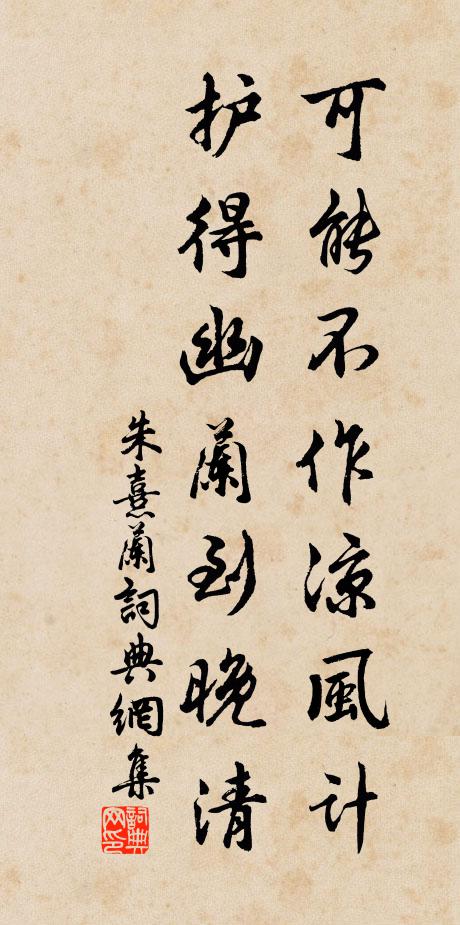 可能不作涼風計
护得幽蘭到晚清
朱熹蘭詞典網集
詞典网印